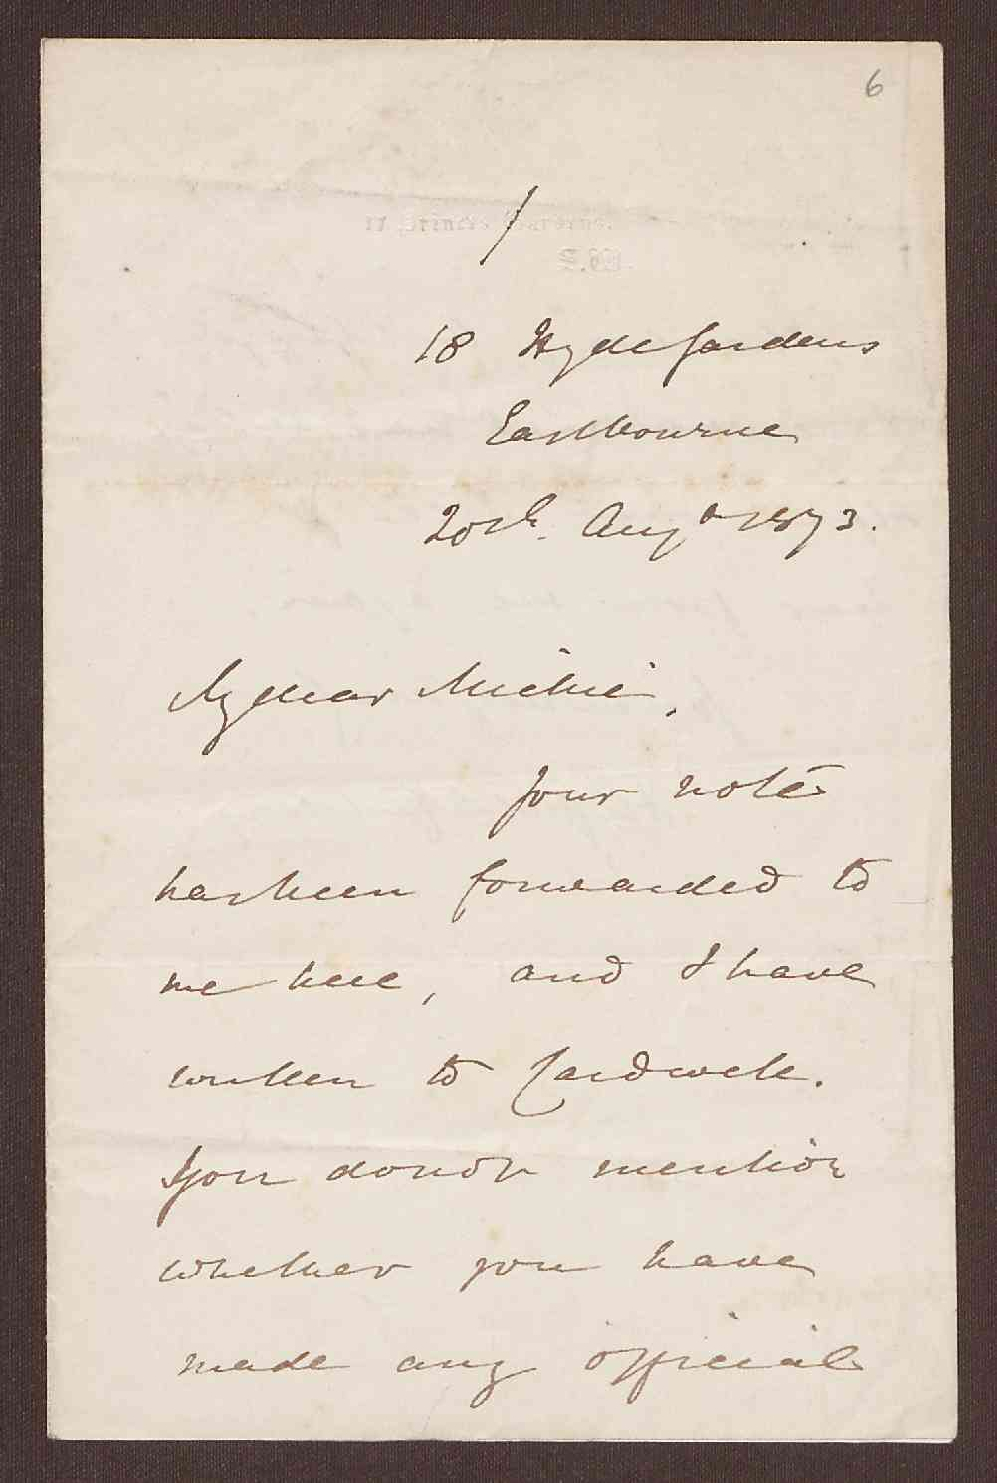 6
17 Princes Gardens.
18 Hyde Gardens
Eastbourne
20th. Augt 1873.
My dear Michie,
Your note
has been forwarded to
me here, and I have
written to Cardwell.
You do not mention
whether you have
made any official